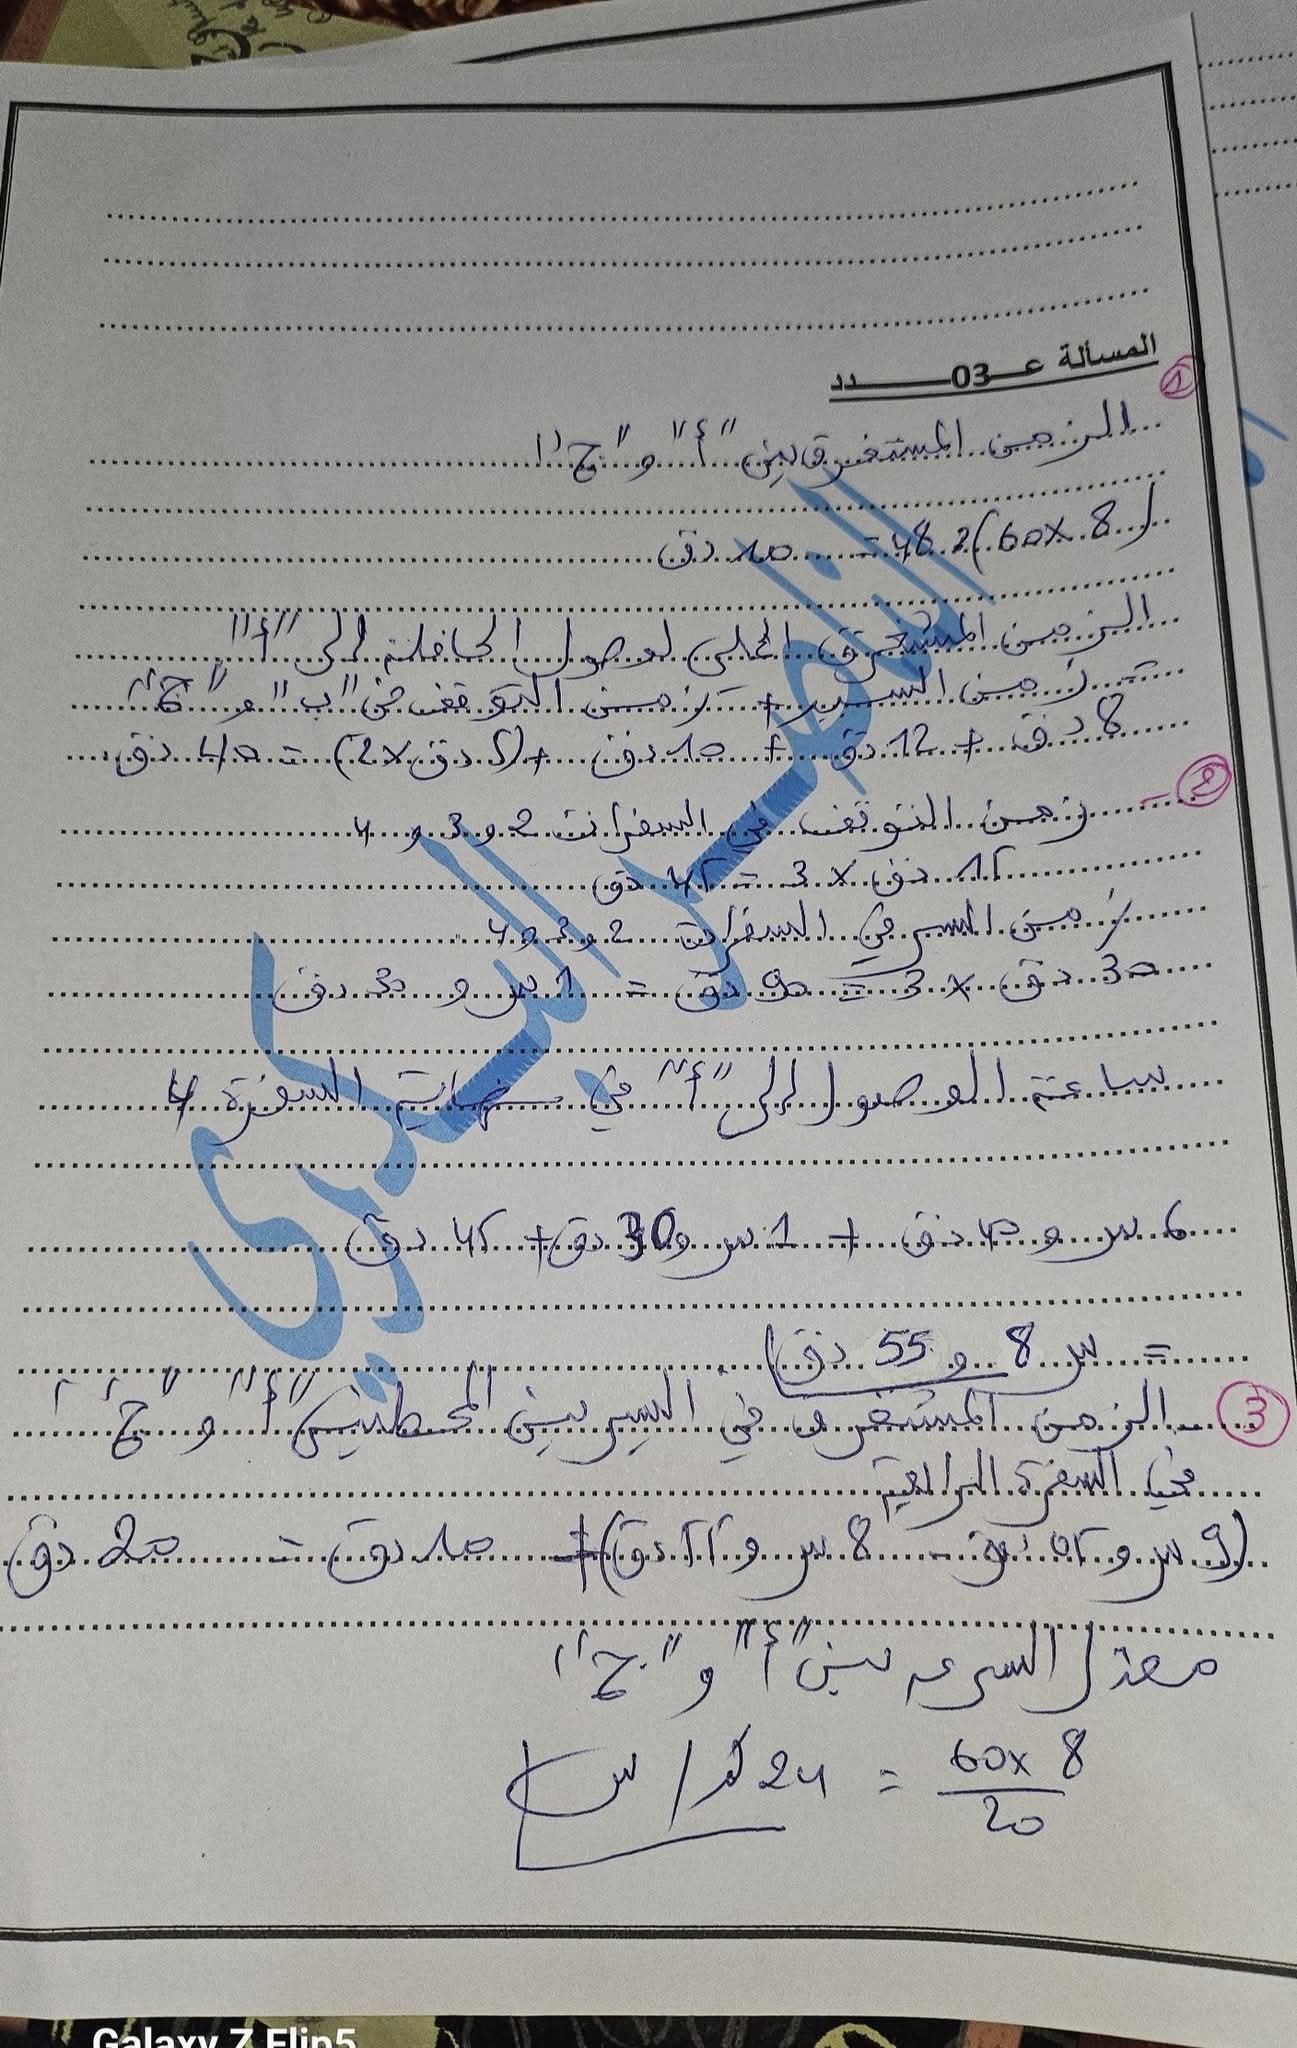 المسألة عـــ03ـــــــدد
①
الزمن المستغرق بين "أ" و"ج"
(60x8) : 48 = 10 دق
الزمن المستغرق الكلي لوصول الحافلة إلى "أ"
= زمن السير + زمن التوقف في "ب" و"ج"
8 دق + 12 دق + 10 دق + (5 دق x2) = 40 دق
② - زمن التوقف في السفرات 2 و 3 و 4
15 دق x 3 = 45 دق
زمن السير في السفرات 2 و 3 و 4
30 دق x 3 = 90 دق = 1 س و 30 دق
ساعة الوصول إلى "أ" في نهاية السفرة 4
6 س و 40 دق + 1 س و 30 دق + 45 دق
= س 8 و 55 دق
③ - الزمن المستغرق في السير بين المحطتين "أ" و "ج"
في السفرة الرابعة
(9 س و 05 دق - 8 س و 55 دق) + 10 دق = 20 دق
معدل السرعة بين "أ" و "ج"
60x 8 / 20 = 24 كم / س
الناصر السكري
Galaxy Z Flip5